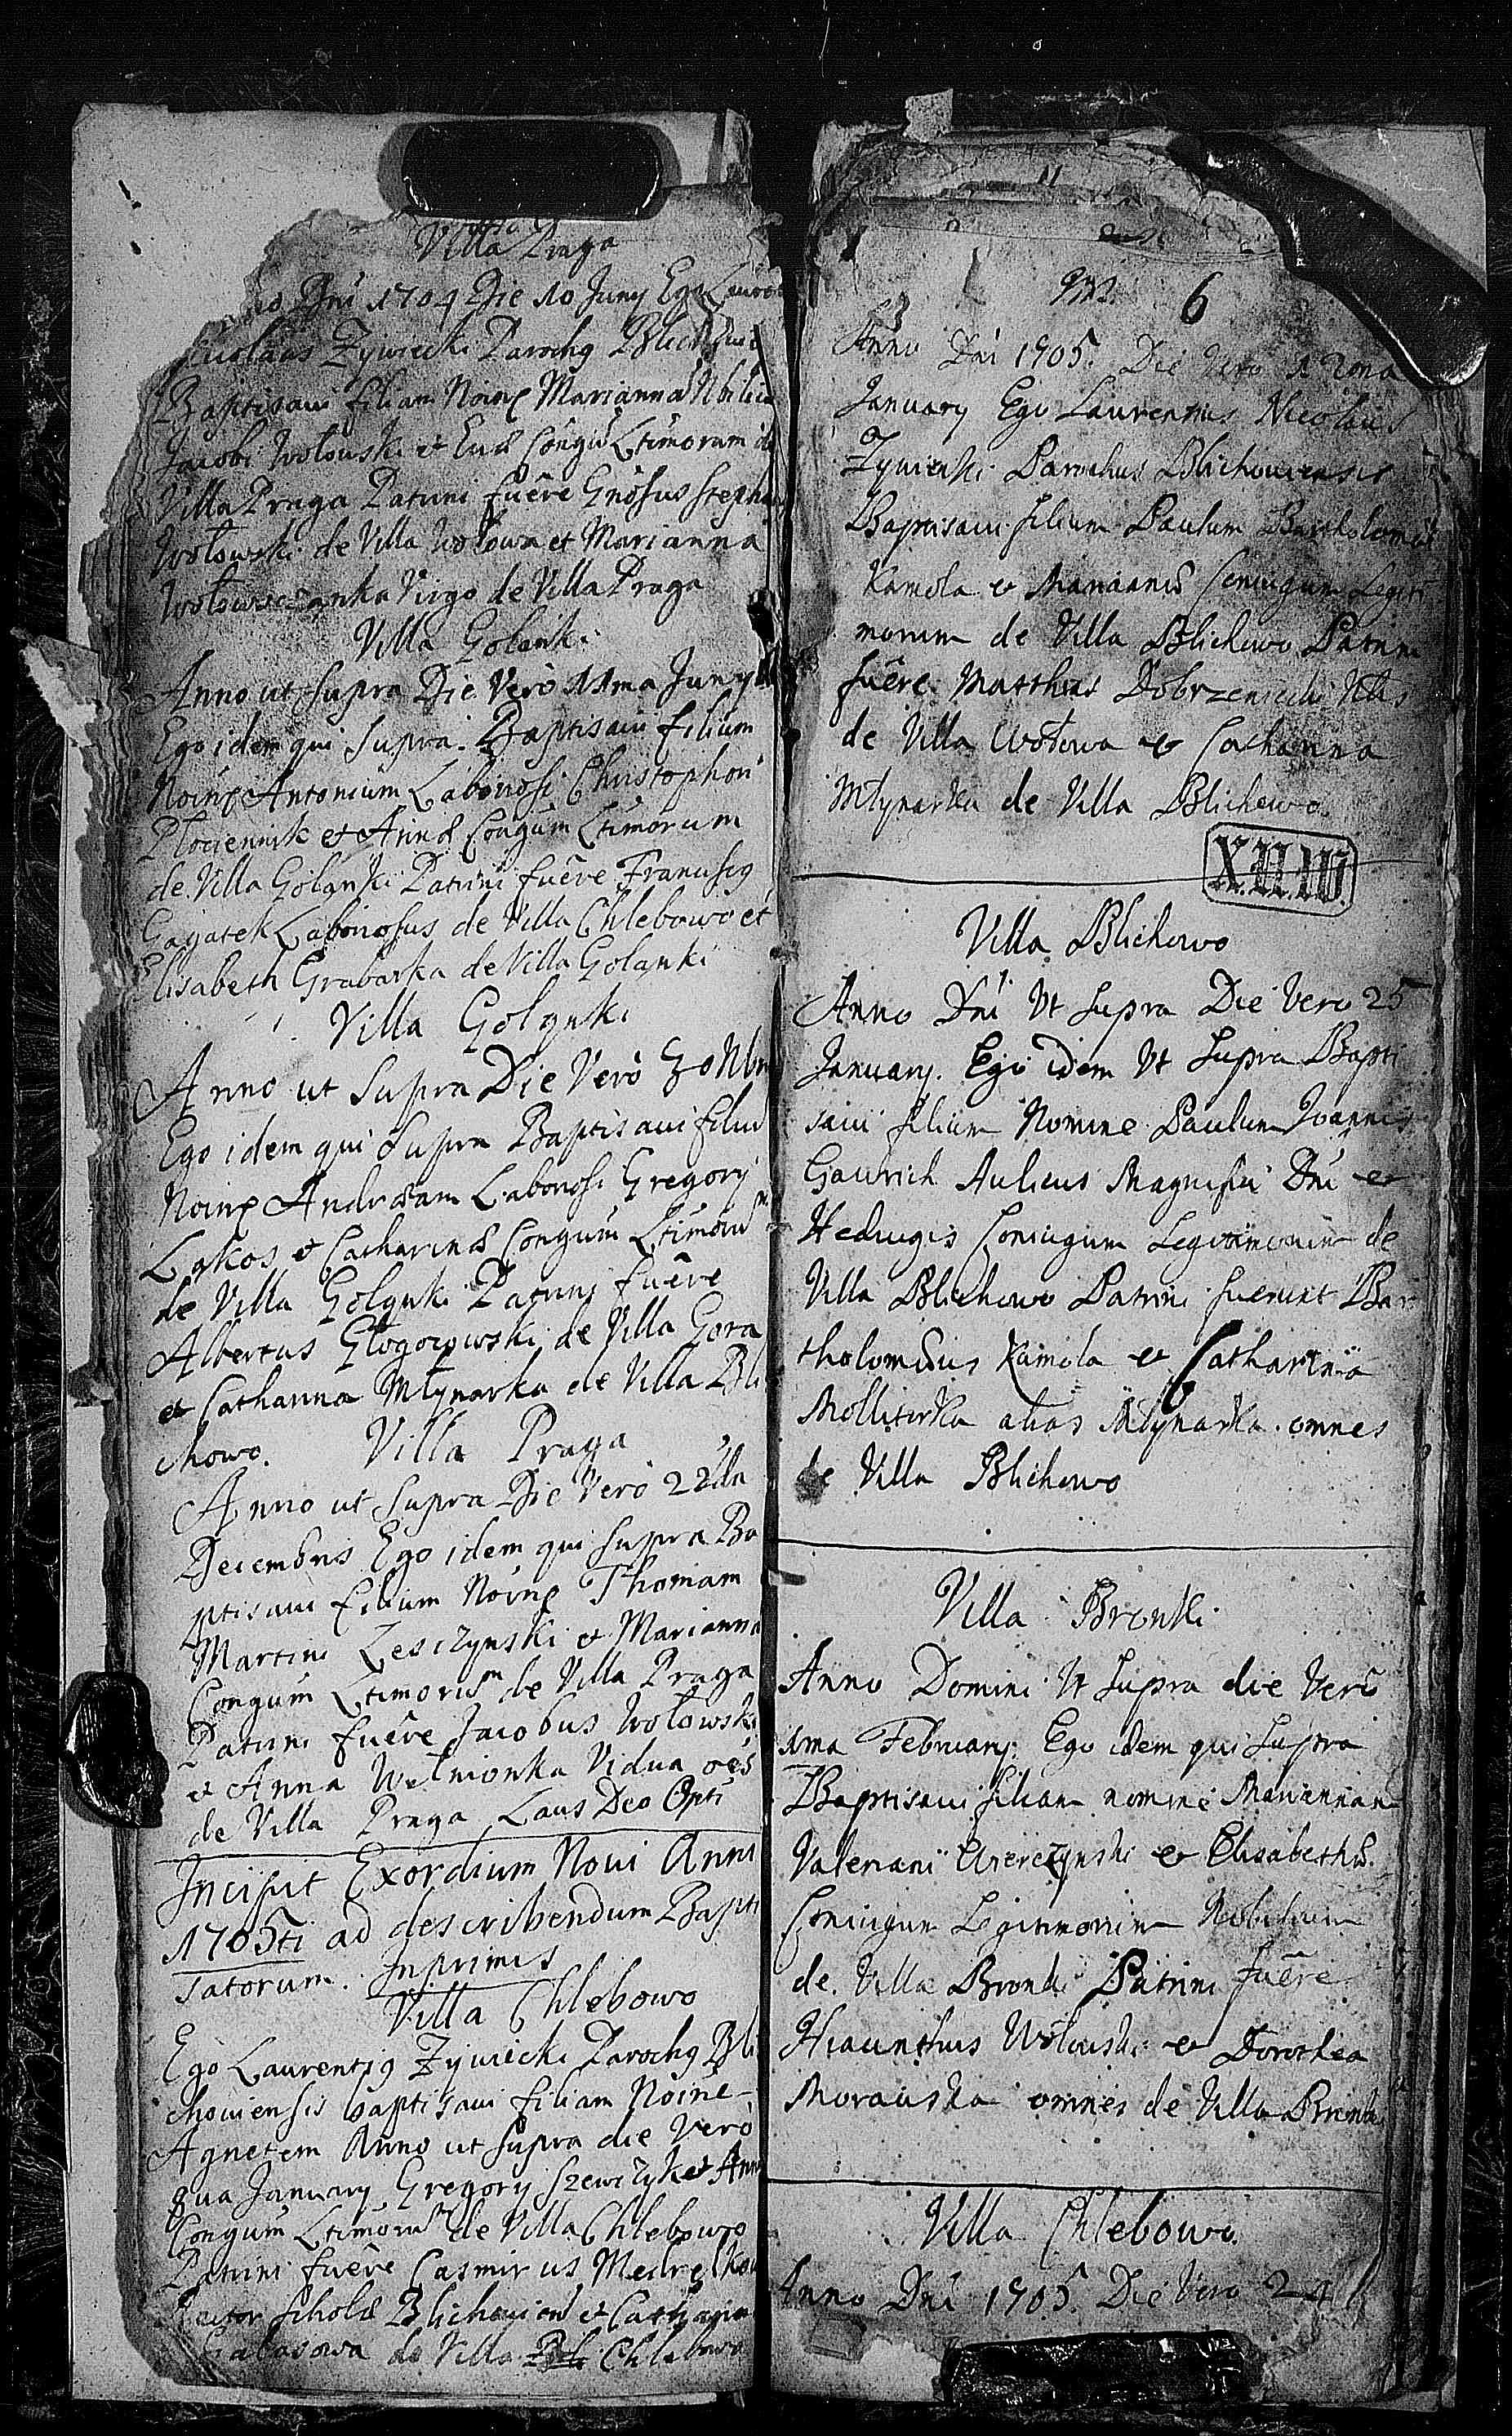 Villa Praga
Dni 1704 Die 10 Juny Ego
Zywiecki Parochg
Baptisavi filiam Noinę Mariannā
Jacobi Wołowski et Evæ Congū Ltimorum
Villa Praga Patrini fuêre Gnõsus
Wołowski de Villa Wołowa et Marianna
Virgo de Villa Praga
Villa Golanki
Anno ut supra Die Verò 11ma Juny
Ego idem qui Supra Baptisavi filium
Noinę Antonium Laboriosi Christophori
Płociennik et Annæ Congum Ltimorum
de Villa Golanki Patrini fuêre Franciscg
Gagatek Laboriosus de Villa Chlebowo et
Elisabeth Grabarka de Villa Golanki
Villa Goląnki
Anno ut Supra Die Verò 30
Ego idem qui Supra Baptisavi
Noinę Andræam Laboriosi Gregory
Łąkos et Catharinæ Congum
de Villa Goląnki Patrini fuêre
Albertus Głogowski de Villa Gora
et Catharina Młynarka de Villa Bli
chowo.
Villa Praga
Anno ut Supra Die Verò 22da
Decembris Ego idem qui supra Ba
ptisavi filium Noinę Thomam
Martini Lesczynski et Marianna
Congum Ltimorum de Villa Praga
Patrini fuêre Jacobus Wołowski
et Anna Vidua oēs
de Villa Praga Laus Deo Opti
Incipit Exordium Novi Anni
1705ti ad describendum Bapti
satorum. Inprimis
Villa Chlebowo
Ego Laurentig Zywiecki Parochg Bli
choviensis baptisavi filiam Noinē
Agnetem Anno ut supra die Verò
January Gregory Szewczyk et
Congum Ltimorum de Villa Chlebowo
Patrini fuêre Casmirus
Rector Scholæ et
de Villa Chlebowo
6
Anno Dni 1705. Die Vero
January Ego Laurentius Nicolaus
Zywiecki Parochus Blichoviensis
Baptisavi filium Paulum Bartholomæi
Kamola et Mariannæ Coniugum Legiti
morum de Villa Blichowo Patrini
fuêre Matthias
de Villa Wołowa et Catharina
Młynarka de Villa Blichowo.
Villa Blichowo
Anno Dni Vt Supra Die Vero 25
January. Ego idem Vt Supra Bapti
savi filium Nomine Paulum Joannis
Gawrich Aulicus Magnifici Dni et
Hedvigis Coniugum Legitimorum de
Villa Blichowo Patrini fuerunt Bar
tholomæus Kamola et Catharina
Mollitorka alias Młynarka omnes
de Villa Blichowo
Villa Bronki
Anno Domini Vt Supra die Verò
1ma February. Ego idem qui Supra
Baptisavi filiam nomine Mariannam
Valeriani et Elisabethæ
Coniugum Legitimorum Nobilium
de Villa Bronki Patrini fuêre
Hiacinthus Wołowski et Dorothea
Morawska omnes de Villa Bronki
Villa Chlebowo.
Anno Dni 1705. Die Vero 24